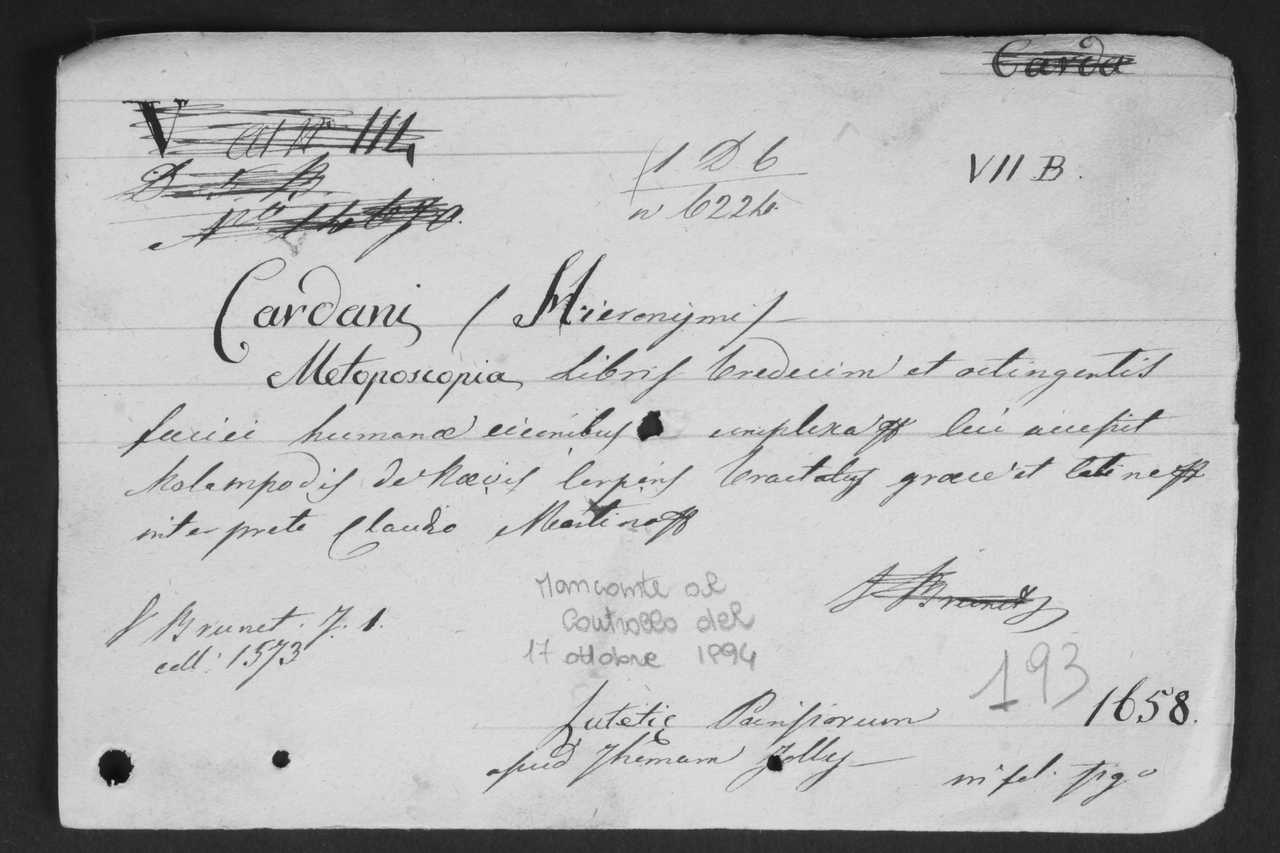 Carda
V III
D 5 B
N.º 14670.
1 D 6
n 6224
VII B.
Cardani (Hieronymi)
Metoposcopia Libris tredecim et octingentis
faciei humanæ eiconibus complexa cui accessit
Melampodis de Nævis Corporis tractatus græce et latine
interprete Claudio Martino
V Brunet
V Brunet. T. 1.
coll. 1573
Mancante al
Controllo del
17 ottobre 1894
193
Lutetiæ Parisiorum 1658.
apud Thomam Jolly
in fol. fig.º